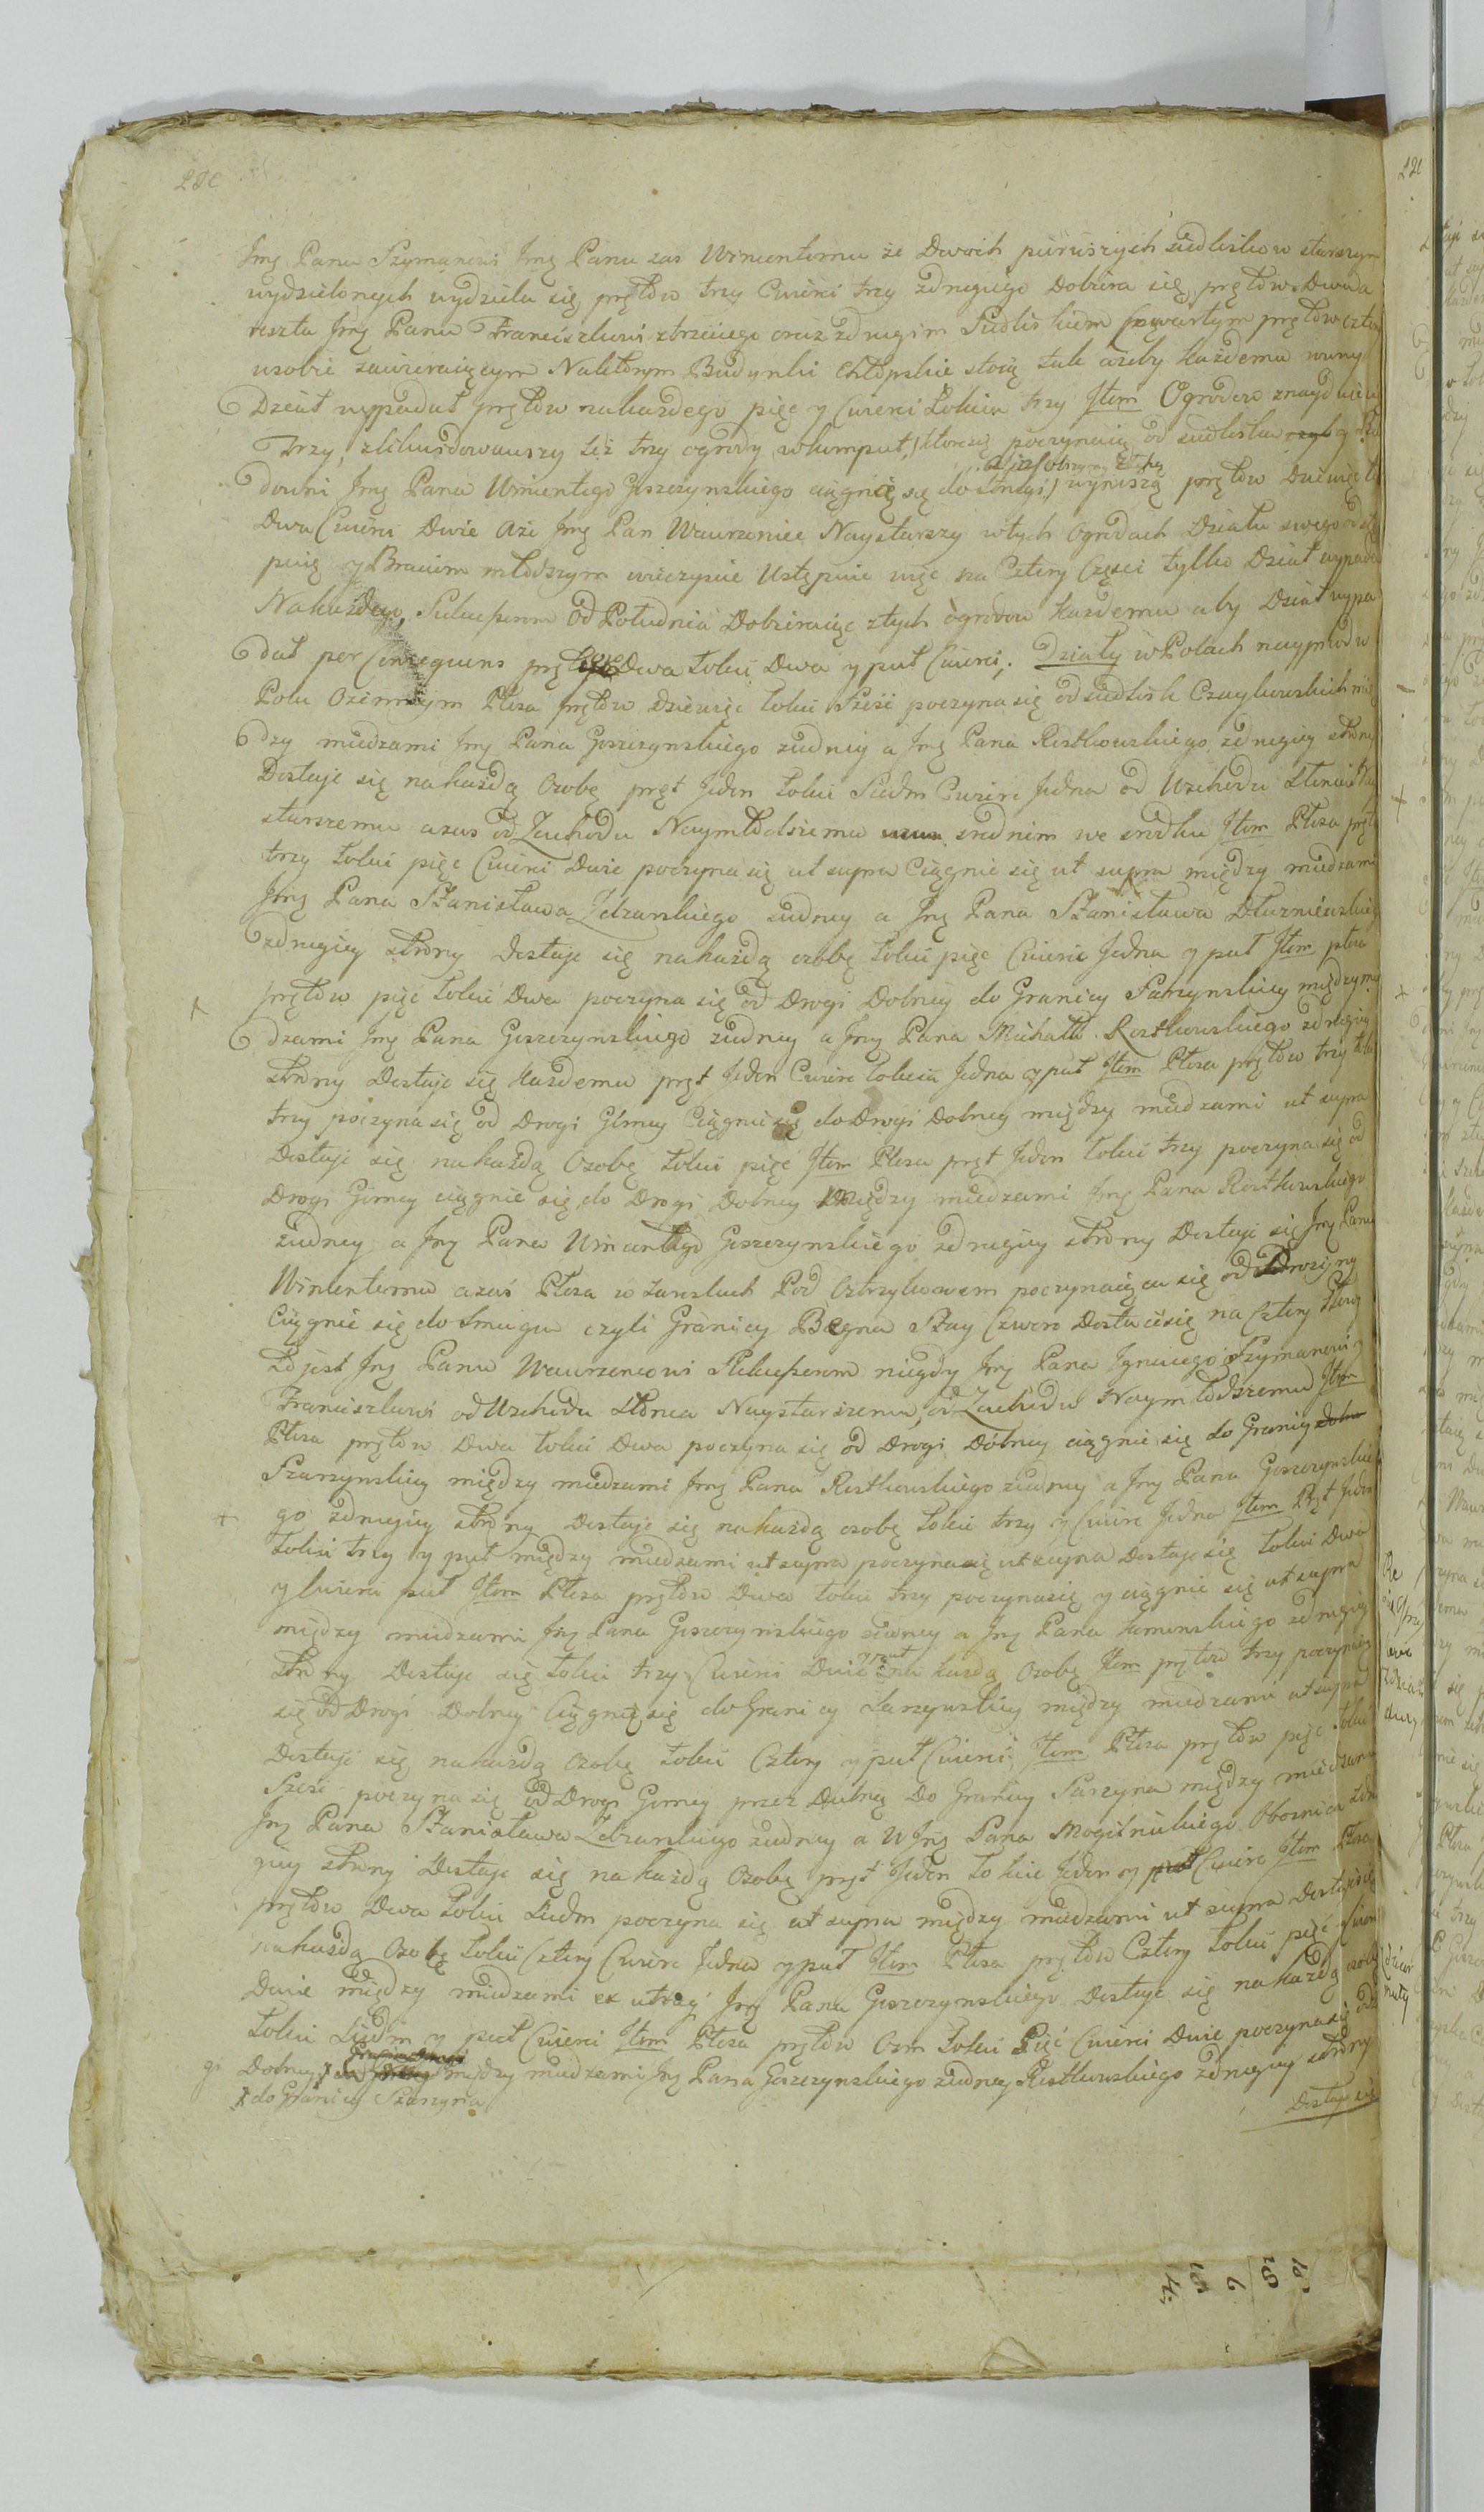 Jmę Panu Szymanowi Jmę Panu zas Wincentemu ze Dwoch pierwszych siedliskow starszym
wydzielonych wydziela się prętow trzy Cwierci trzy zdrugiego Dobiera się prętow Dwa a
reszta Jmę Panu Franciszkowi ztrzeciego oraz zdrugim Siedliskiem czwartym prętow cztery
wsobie zawieraiącym Naktorym Budynki Chłopskie stoią tak azeby kazdemu rowny
Dział wypadał prętow nakazdego pięc y Cwierci Łokcia trzy Jtem Ogrodow znayduie się
Trzy, zlikwidowawszy też trzy ogrody wkomput, ktore się poczynaią od siedliska y Sto
downi Jmę Pana Wincentego Gzszczynskiego ciągnie się do wynoszą prętow Dziewięc
Dwa Cwierci Dwie Aże Jmę Pan Wawrzeniec Naystarszy wtych Ogrodach Działu swego odstę
puię y Braciom młodszym wieczyscie Ustępuie więc na Cztery Częsci tylko Dział wypada
Nakazdego, Sukcessorom Od Południa Dobieraiąc ztych ogrodow kazdemu aby Dział wypa
dał per Consequens Dwa Łokci Dwa y puł Cwierci, Działy w Polach nayprzod w
Polu Ozimnym Płosa prętow dziewięc łokci Szesc poczyna się od siedlisk Czaykowskich mię
dzy miedzami Jmę Pana Goszczynskiego ziedney a Jmę Pana Rostkowskiego zdrugiey strony
Dostaje się na kazdą Osobę pręt Jeden Łokci Siedm Cwierc Jedna od Wschodu Słonca Nay
starszemu azas od Zachodu Naymłodszemu srednim we srodku Jtem Płosa prętow
trzy Łokci pięc Cwierci Dwie poczyna się ut supra Ciągnie się ut supra między miedzami
Jmę Pana Stanisława Zdzarskiego ziedney a Jmę Pana Stanisława Dłuzniewskiego
zdrugiey strony dostaje się nakazdą osobę łokci pięc Cwierc Jedna y puł Jtem płosa
prętow pięc łokci Dwa poczyna się od Drogi Dolney do Granicy Sarzynskiey między mie
dzami Jmę Pana Goszczynskiego ziedney a Jmę Pana Michała Rostkowskiego zdrugiey
strony Dostaje się kazdemu pręt Jeden Cwierc łokcia Jedna y puł Jtem Płosa prętow trzy łokci
trzy poczyna się od Drogi Górney Ciągnie się do Drogi Dolney między miedzami ut supra
Dostaje się na kazdą Osobę łokci pięc Jtem Płosa pręt Jeden łokci trzy poczyna się od
Drogi Górney ciągnie się do Drogi Dolney między miedzami Jmę Pana Rostkowskiego
ziedney a Jmę Pana Wincentego Goszczynskiego zdrugiey strony Dostaje się Jmę Panu
Wincentemu azaś Płosa w Zawzkach Pod Ostrzykowem poczynaiąca się od Drożyny
Ciągnie się do Smuga czyli Granicy Bagna Stay Czworo Dostaie się na Cztery Osoby
to jest Jmę Panu Wawrzencowi Sukcessorom niegdy Jmę Pana Jgnacego, Szymanowi y
Franciszkowi od Wschodu Słonca Naystarszemu, od Zachodu Naymłodszemu Jtem
Płosa prętow Dwa łokci Dwa poczyna się od Drogi Dolney ciągnie się do Granicy
Szarzynskiey między miedzami Jmę Pana Rostkowskiego ziedney a Jmę Pana Goszczynskie
go zdrugiey strony Dostaje się na kazdą osobę łokci trzy y Cwierc Jedna Jtem Pręt Jeden
łokci trzy y puł między miedzami ut supra poczyna się ut supra dostaje się łokci Dwa
y Cwierci puł Jtem Płosa prętow Dwa łokci trzy poczyna się y ciągnie się ut supra
między miedzami Jmę Pana Goszczynskiego ziedney a Jmę Pana Kamienskiego zdrugiey
strony Dostaje się łokci trzy Cwierci Dwie y puł na kazdą Osobę Jtem prętow trzy poczyna
się od Drogi Dolney Ciągnie się do Granicy Sarzynskiey między miedzami ut supra
Dostaje się na kazdą Osobę łokci Cztery y puł Cwierci, Jtem Płosa prętow pięc łokci
Szesc poczyna się od Drogi Gorney przez Dolną Do Granicy Sarzyna między miedzami
Jmę Pana Stanisława Zdzarskiego ziedney a W Jmę Pana Mogilnickiego Oboznica zdru
giey strony Dostaje się na kazdą Osobę pręt Jeden łokiec Jeden y Cwierc Jtem Płosa
prętow Dwa łokci Siedm poczyna się ut supra między miedzami ut supra Dostaje się
na kazdą Osobę łokci Cztery Cwierc Jedna y puł Jtem Płosa prętow Cztery łokci pięc Cwierci
Dwie między miedzami ex utraq Jmę Pana Goszczynskiego Dostaje się na kazdą osobę
łokci Siedm y puł Cwierci Jtem Płosa prętow Osm łokci Pięc Cwierci Dwie poczyna się od Dro
gi Dolney między miedzami Jmę Pana Goszczynskiego ziedney Rostkowskiego zdrugiey strony
do Granicy Szarzyna
Dostaje się